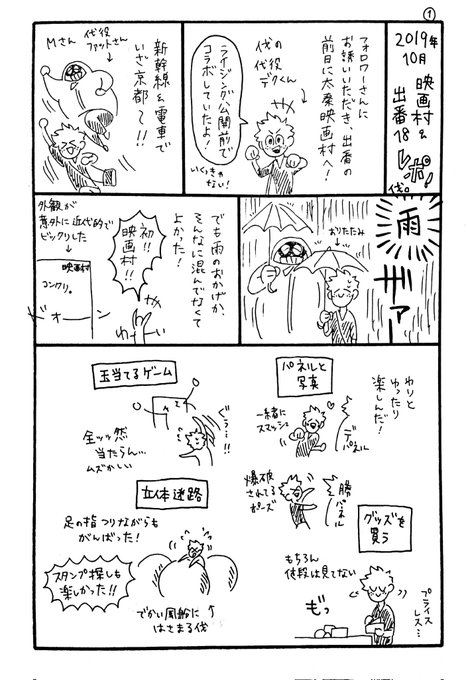 ①
2019年
10月
映画村&
出番18
レポ。
伐。
フォロワーさんに
お誘いいただき、出番の
前日に太秦映画村へ!
伐の
代役
デクくん
ライジング公開前で
コラボしていたよ!
いくっきゃない!
新幹線&電車で
いざ京都〜!!
代役
ファットさん
Mさん
雨
ザァー
おりたたみ
でも雨のおかげか、
そんなに混んでなくて
よかった!
初!!
映画村!!
わーい
外観が
意外に近代的で
ビックリした
映画村
コンクリ。
ドォーン
わりと
ゆったり
楽しんだ!
パネルと
写真
一緒に
スマッシュ
デクパネル
爆破
されてる
ポーズ
勝パネル
玉当てるゲーム
ぐぅ…!!
全ッッ然
当たらん…
ムズかしい
立体迷路
足の指つりながらも
がんばった!
スタンプ探しも
楽しかった!!
でかい風船に
はさまる伐
グッズを
買う
もちろん
値段は見てない
もっ
プライス
レス…